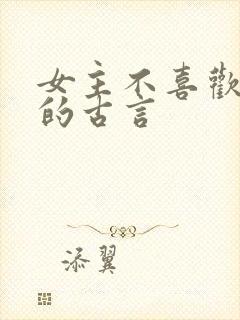 女主不喜歡
的古言
添翼